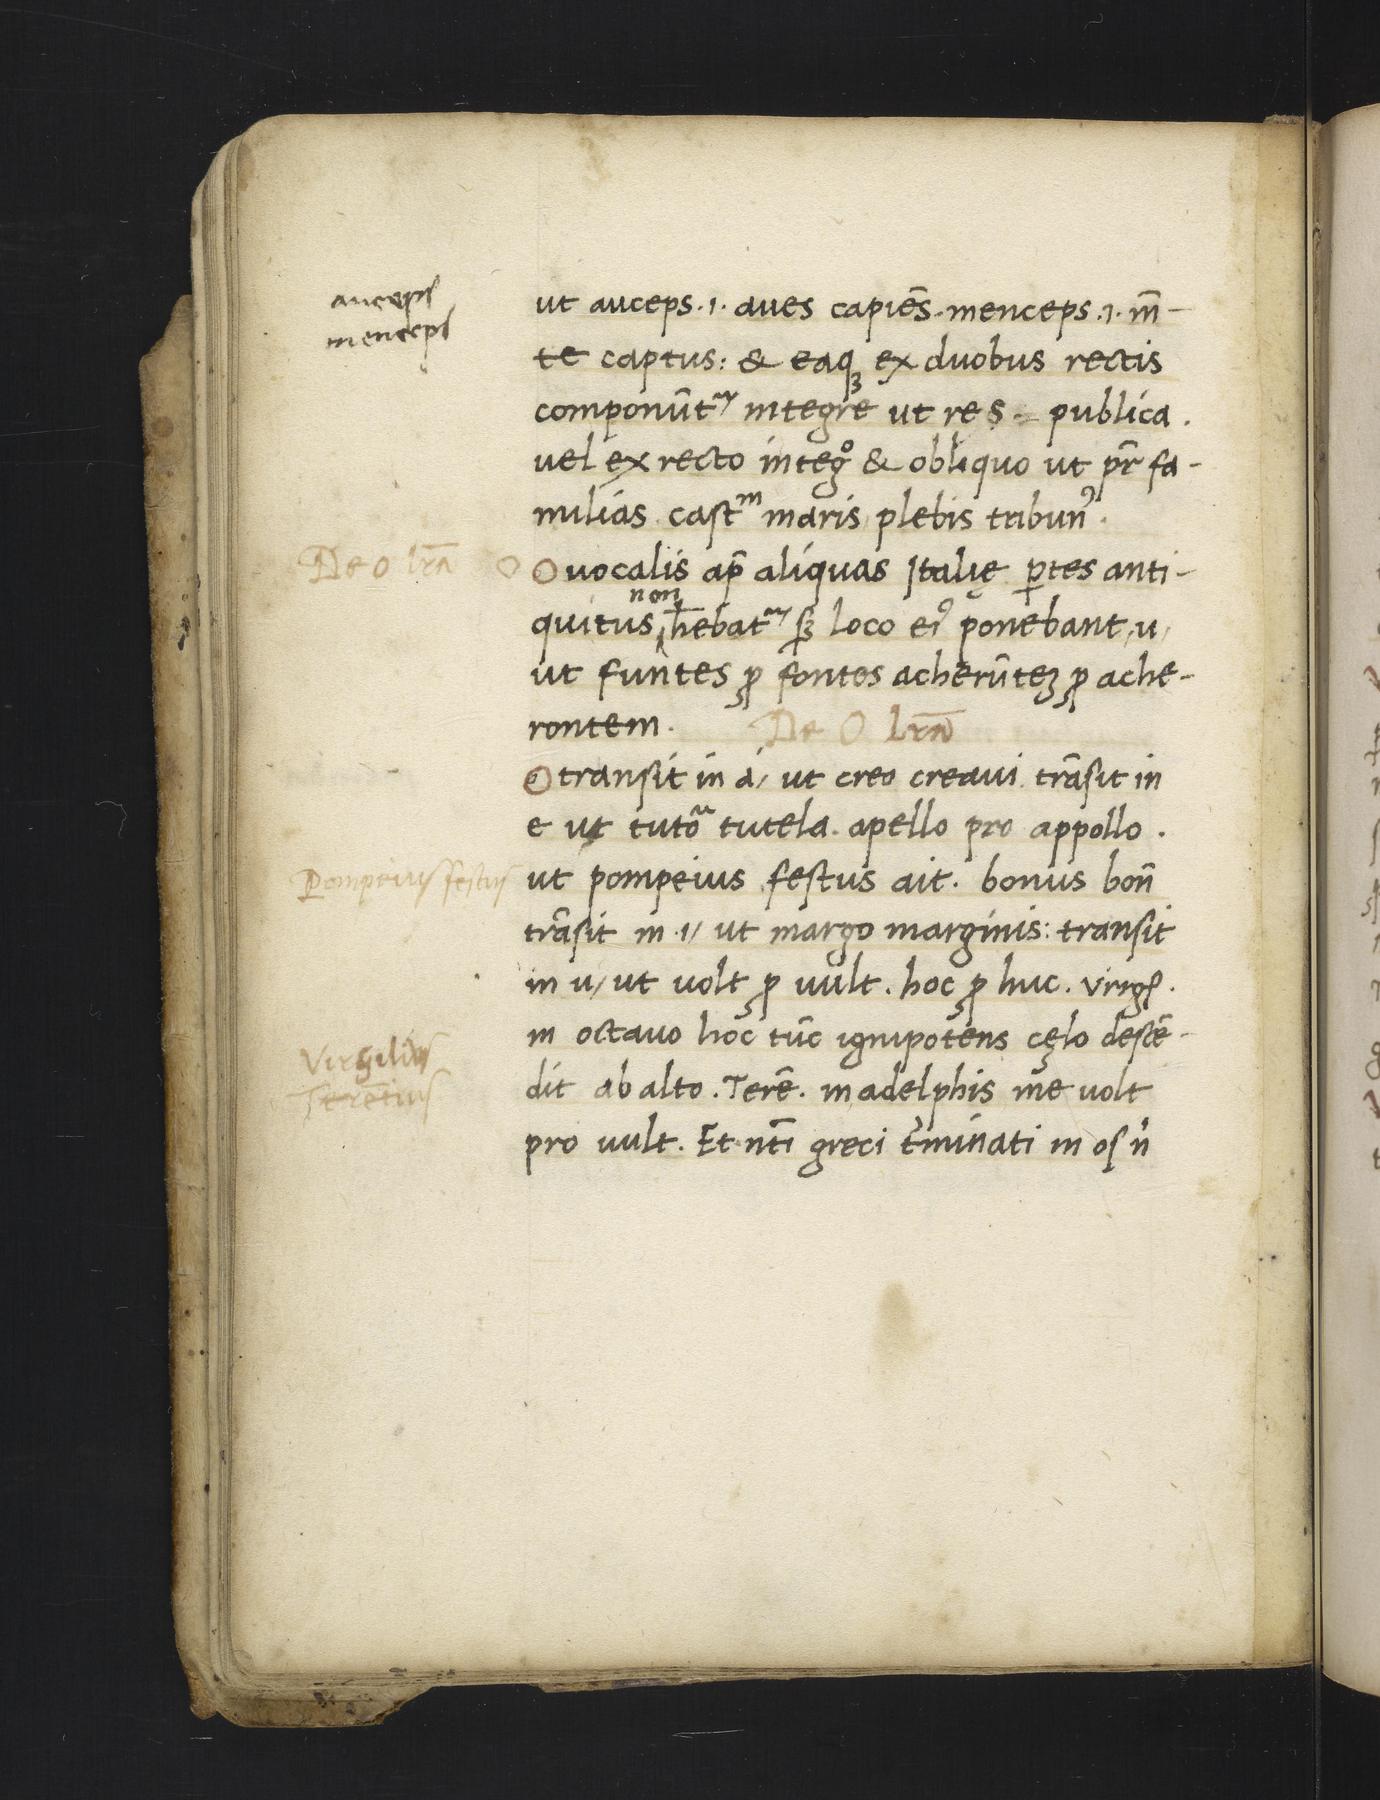 auceps
menceps
ut auceps .i. aues capiēs. menceps .i. m̄-
te captus: & eaqꝫ ex duobus rectis
componūtᷣ integre ut res - publica.
uel ex recto integº & obliquo ut pr̄ fa-
milias castᵐ maris plebis tribunꝰ.
De o lr̄a
O uocalis ap̄ aliquas Italię ꝑtes anti-
non
quitus hēbatᷣ sꝫ loco eiꝰ ponebant, u,
ut funtes ꝓ fontes acherūteꝫ ꝓ ache-
rontem. De O lr̄a
O transit in a, ut creo creaui. trāsit in
e ut tutoᷣ tutela. apello pro appollo.
Pompeius festus
ut pompeius festus ait. bonus bon̄
trāsit in .i, ut margo marginis: transit
in u, ut uolt ꝓ uult. hoc ꝓ huc. Virgꝭ.
in octauo hoc tūc ignipotens cęlo descē-
Virgilius
Terētius
dit ab alto. Terē. in adelphis me uolt
pro uult. Et nt̄i greci t̓minati in os n̄